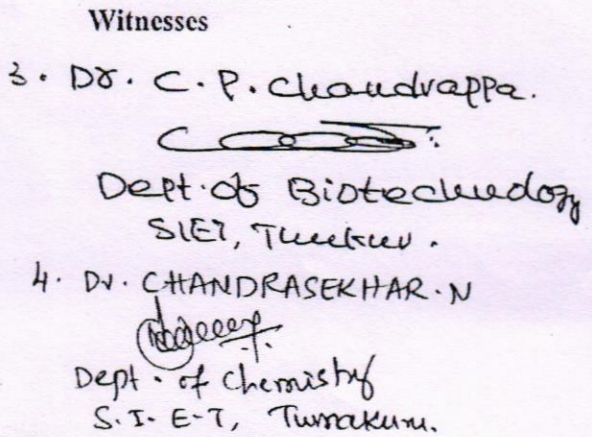 Witnesses
3. Dr. C. P. Chandrappa.
Dept. of Biotechnology
SIET, Tumkur.
4. Dr. CHANDRASEKHAR. N
Dept. of Chemistry
S.I.E.T, Tumakuru.